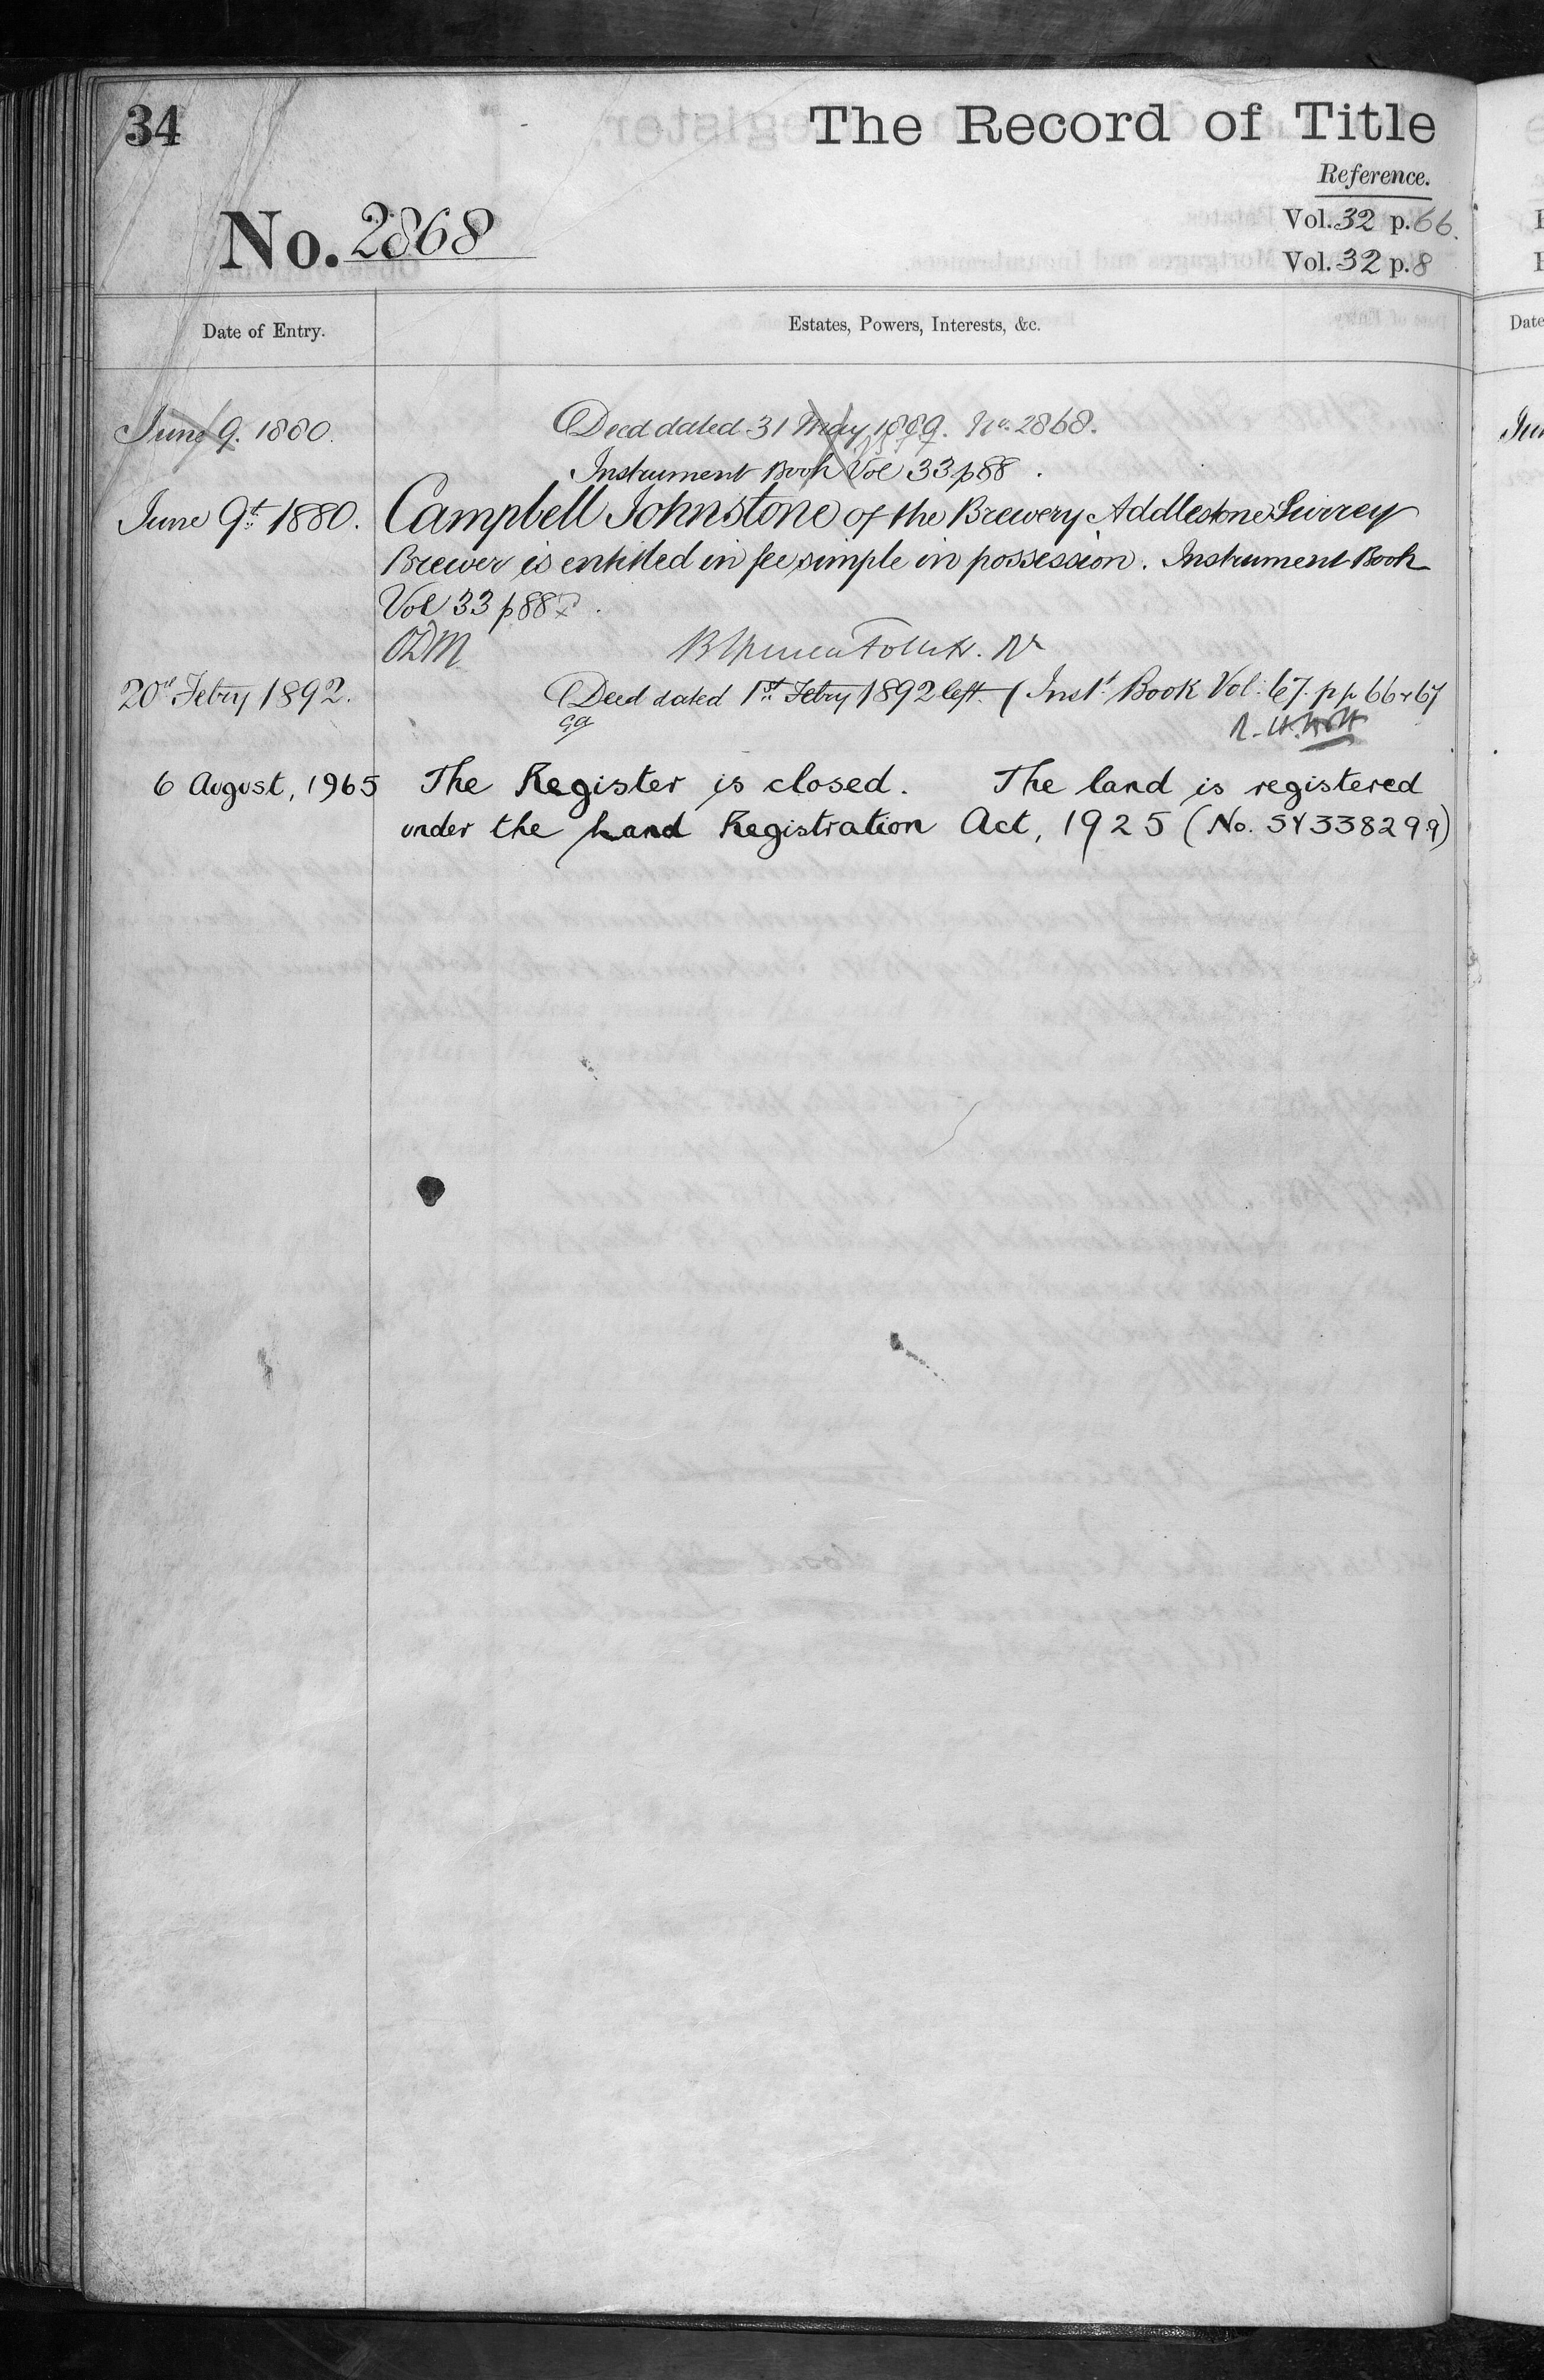 34
The Record of Title
Reference.
No. 2868
Vol. 32 p. 66.
Vol. 32 p. 8
Date of Entry.
Estates, Powers, Interests, &c.
June 9. 1880.
Deed dated 31 May No. 2868.
Instrument Book Vol 33 p 88.
June 9th 1880. Campbell Johnstone of the Brewery Addlestone Surrey
Brewer is entitled in fee simple in possession. Instrument Book
Vol 33 p 88
ODM
20th Febry 1892. Deed dated 1st Febry 1892 left (Inst. Book Vol. 67. pp 66 & 67
6 August, 1965 The Register is closed. The land is registered
under the Land Registration Act, 1925 (No.
Date